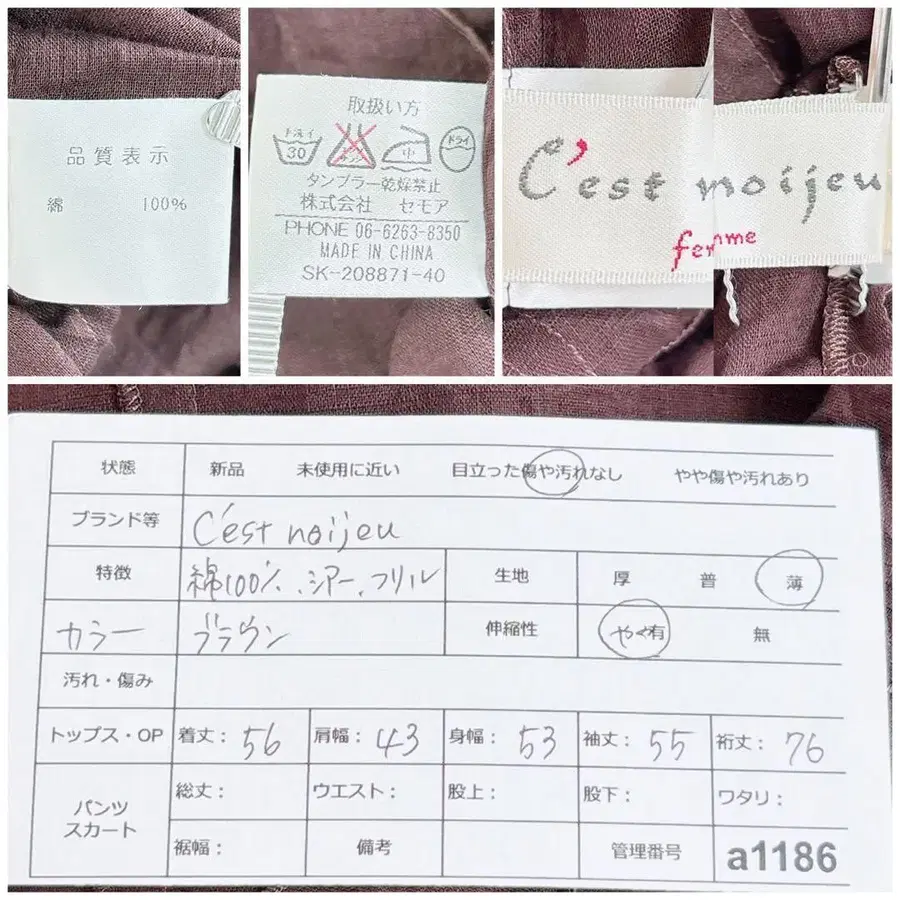 品質表示
綿 100%
取扱い方
手洗イ 30 中 ドライ
タンブラー乾燥禁止
株式会社 セモア
PHONE 06-6263-8350
MADE IN CHINA
SK-208871-40
C'est noijeu
femme
状態 新品 未使用に近い 目立った傷や汚れなし やや傷や汚れあり
ブランド等 C'est noijeu
特徴 綿100%、シアー、フリル 生地 厚 普 薄
カラー ブラウン 伸縮性 やや有 無
汚れ・傷み
トップス・OP 着丈: 56 肩幅: 43 身幅: 53 袖丈: 55 裄丈: 76
パンツ スカート 総丈: ウエスト: 股上: 股下: ワタリ:
裾幅: 備考 管理番号 a1186